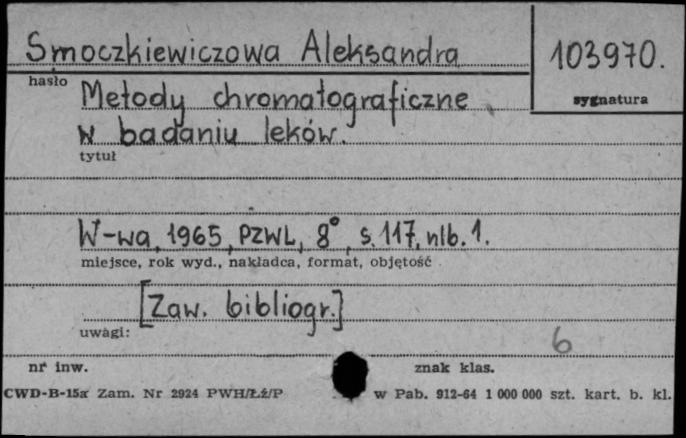 Smoczkiewiczowa Aleksandra
103970.
hasło
sygnatura
Metody chromatograficzne
w badaniu leków.
tytuł
W-wa, 1965, PZWL, 8°, s. 117, nlb. 1.
miejsce, rok wyd., nakładca, format, objętość
[Zaw. bibliogr.]
uwagi:
6
nr inw.
znak klas.
CWD-B-15a Zam. Nr 2924 PWH/Łź/P
w Pab. 912-64 1 000 000 szt. kart. b. kl.